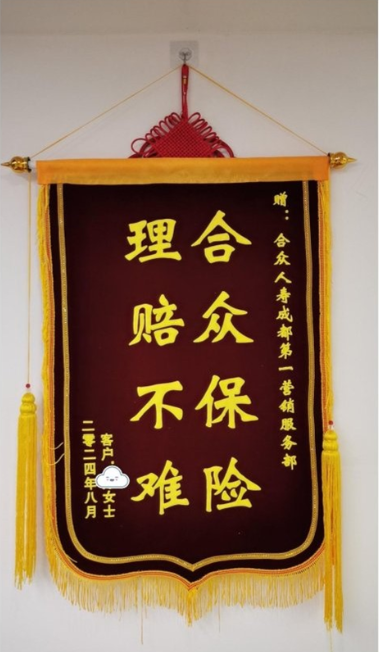 赠：合众人寿成都第一营销服务部
合众保险
理赔不难
客户：女士
二零二四年八月